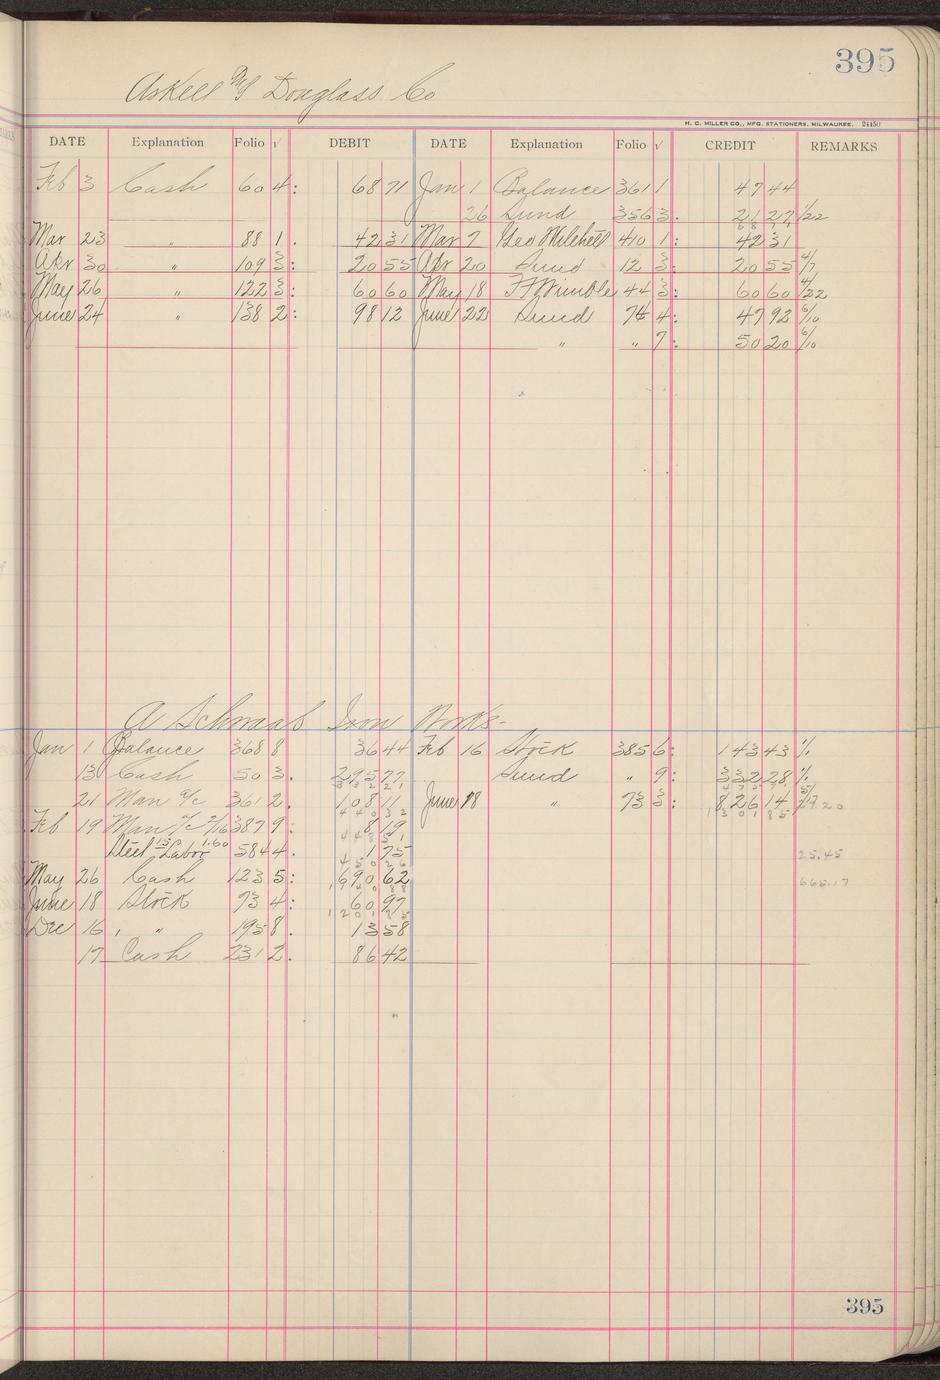 395
Askell Douglass Co
H. C. MILLER CO., MFG. STATIONERS, MILWAUKEE. 24450
DATE Explanation Folio √ DEBIT DATE Explanation Folio √ CREDIT REMARKS
Feb 3 Cash 60 4: 68 71 Jan 1 Balance 361 1 47 44
26 Sund 356 3. 21 27 1/22
68 71
Mar 23 " 88 1. 42 31 Mar 7 Geo Mitchell 410 1: 42 31
Apr 30 " 109 3: 20 55 Apr 20 Sund 12 3: 20 55 4/7
May 26 " 122 3: 60 60 May 18 44 3: 60 60 4/22
June 24 " 138 2: 98 12 June 22 Sund 74 4: 47 92 6/10
" " 7: 50 20 6/10
A Schwaab Iron Works-
Jan 1 Balance 368 8 36 44 Feb 16 Stock 385 6: 143 43
13 Cash 50 3. 295 77 Sund " 9: 332 28
21 Man a/c 361 2. 108 11 June 18 " 73 3: 826 14
Feb 19 Man a/c 2/16 387 9: 8 19
Steel 15 Labor 1.60 584 4. 1 75 25.45
May 26 Cash 123 5: 690 62 665.17
June 18 Stock 73 4: 60 97
Dec 16 " 195 8. 13 58
17 Cash 231 2. 86 42
395